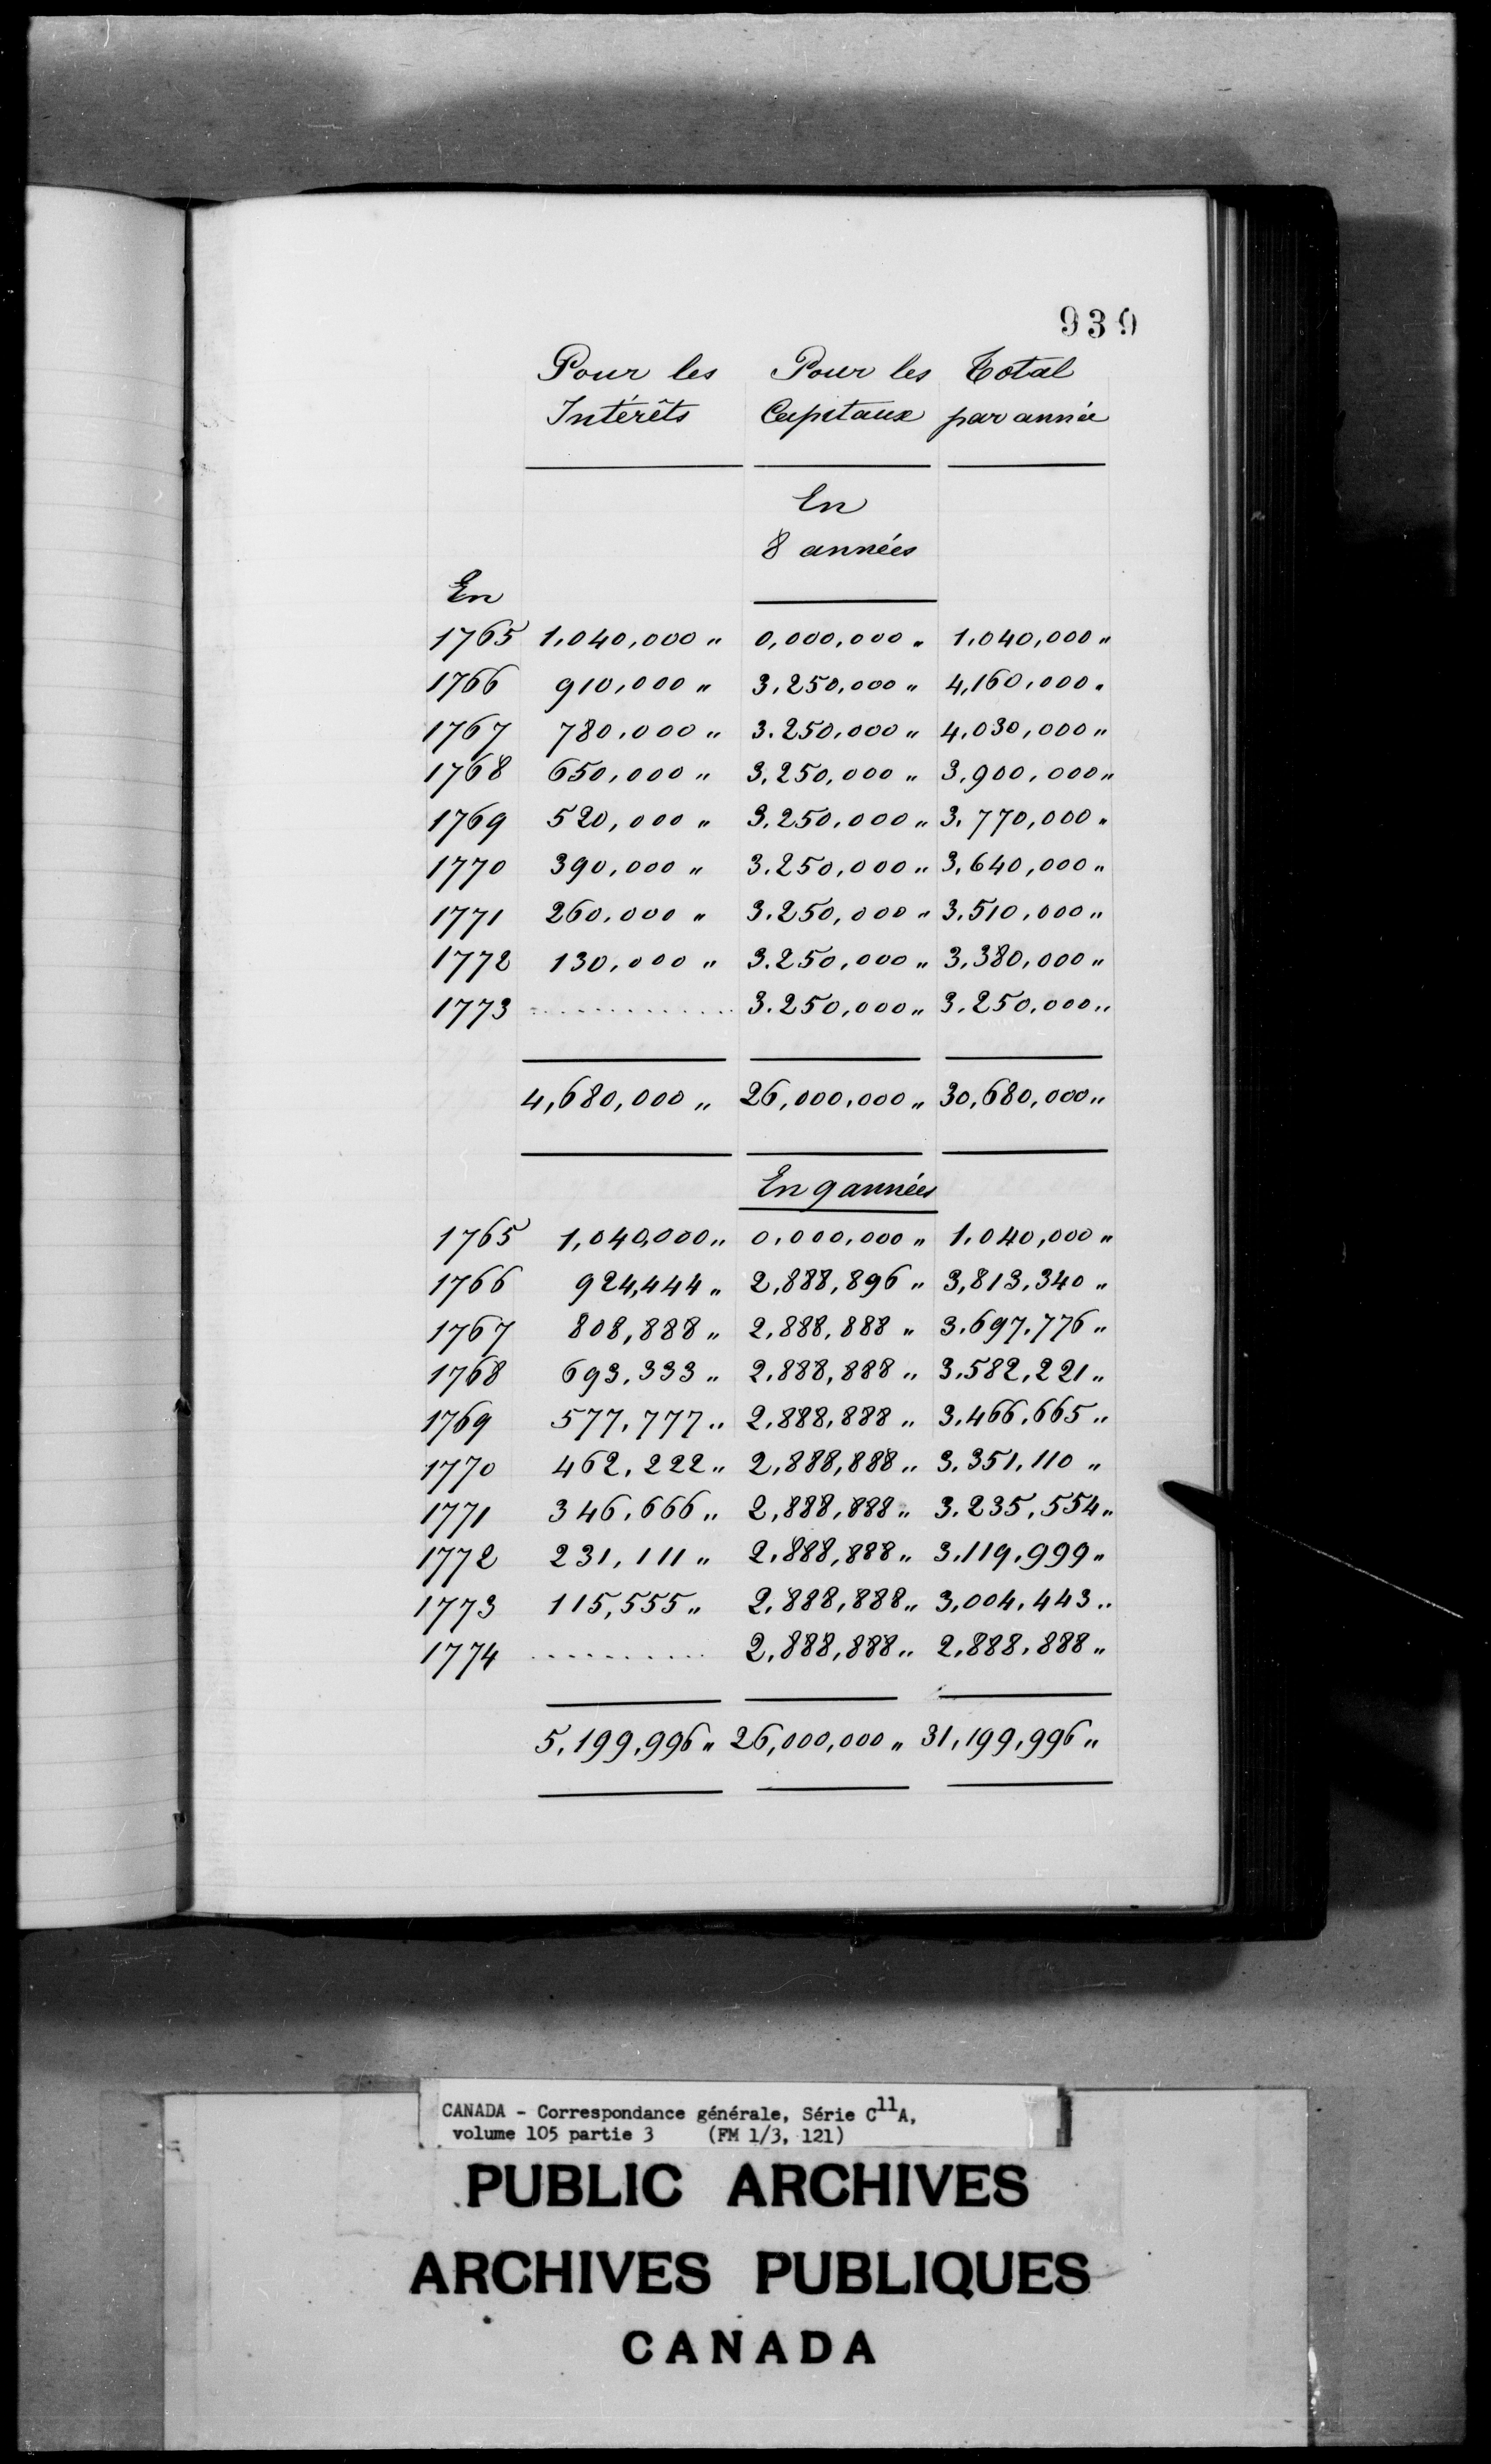 939
Pour les Pour les Total
Intérêts Capitaux par année
En
8 années
En
1765 1,040,000 " 0,000,000 " 1,040,000 "
1766 910,000 " 3,250,000 " 4,160,000 "
1767 780,000 " 3.250,000 " 4,030,000 "
1768 650,000 " 3,250,000 " 3,900,000 "
1769 520,000 " 3,250,000 " 3,770,000 "
1770 390,000 " 3.250,000 " 3,640,000 "
1771 260,000 " 3.250,000 " 3,510,000 "
1772 130,000 " 3.250,000 " 3,380,000 "
1773 ............ 3.250,000 " 3,250,000 "
4,680,000 " 26,000,000 " 30,680,000 "
En 9 années
1765 1,040,000 " 0,000,000 " 1,040,000 "
1766 924,444 " 2,888,896 " 3,813,340 "
1767 808,888 " 2,888,888 " 3,697,776 "
1768 693,333 " 2,888,888 " 3,582,221 "
1769 577,777 " 2,888,888 " 3,466,665 "
1770 462,222 " 2,888,888 " 3,351,110 "
1771 346,666 " 2,888,888 " 3,235,554 "
1772 231,111 " 2,888,888 " 3,119,999 "
1773 115,555 " 2,888,888 " 3,004,443 "
1774 .......... 2,888,888 " 2,888,888 "
5,199,996 " 26,000,000 " 31,199,996 "
CANADA - Correspondance générale, Série C11A,
volume 105 partie 3 (FM 1/3, 121)
PUBLIC ARCHIVES
ARCHIVES PUBLIQUES
CANADA